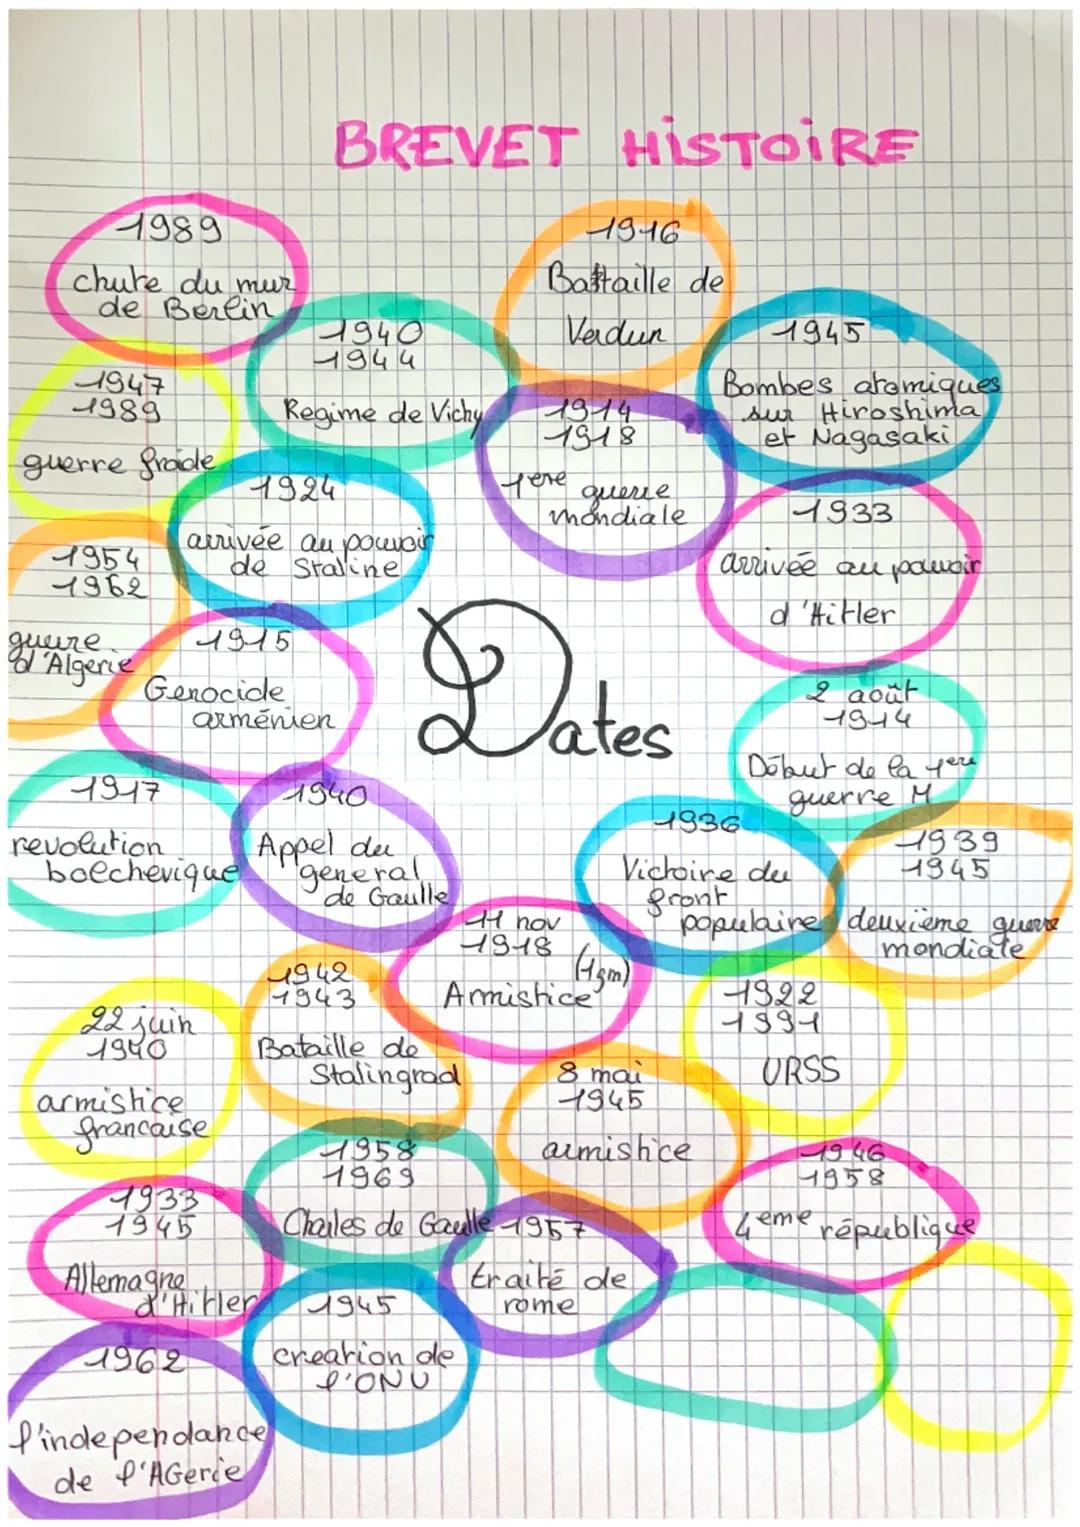 BREVET HiSTOiRE
1989
chute du mur
de Berlin
1916
Battaille de
Verdun
1940
1944
Regime de Vichy
1945
Bombes atomiques
sur Hiroshima
et Nagasaki
1947
1989
guerre froide
1914
1918
1ere guerre
mondiale
1924
arrivée au pouvoir
de Staline
1933
arrivée au pouvoir
d'Hitler
1954
1962
guerre
d'Algerie
1915
Genocide
arménien
Dates
2 août
1914
Début de la 1ere
guerre M
1917
revolution
bolchevique
1940
Appel du
general
de Gaulle
1936
Victoire du
front
populaire
1939
1945
deuxième guerre
mondiale
11 nov
1918
(1gm)
Armistice
1942
1943
Bataille de
Stalingrad
1922
1991
URSS
22 juin
1940
armistice
francaise
8 mai
1945
armistice
1958
1969
Charles de Gaulle
1946
1958
4eme république
1933
1945
Allemagne
d'Hitler
1957
traité de
rome
1945
creation de
l'ONU
1962
l'independance
de l'AGerie